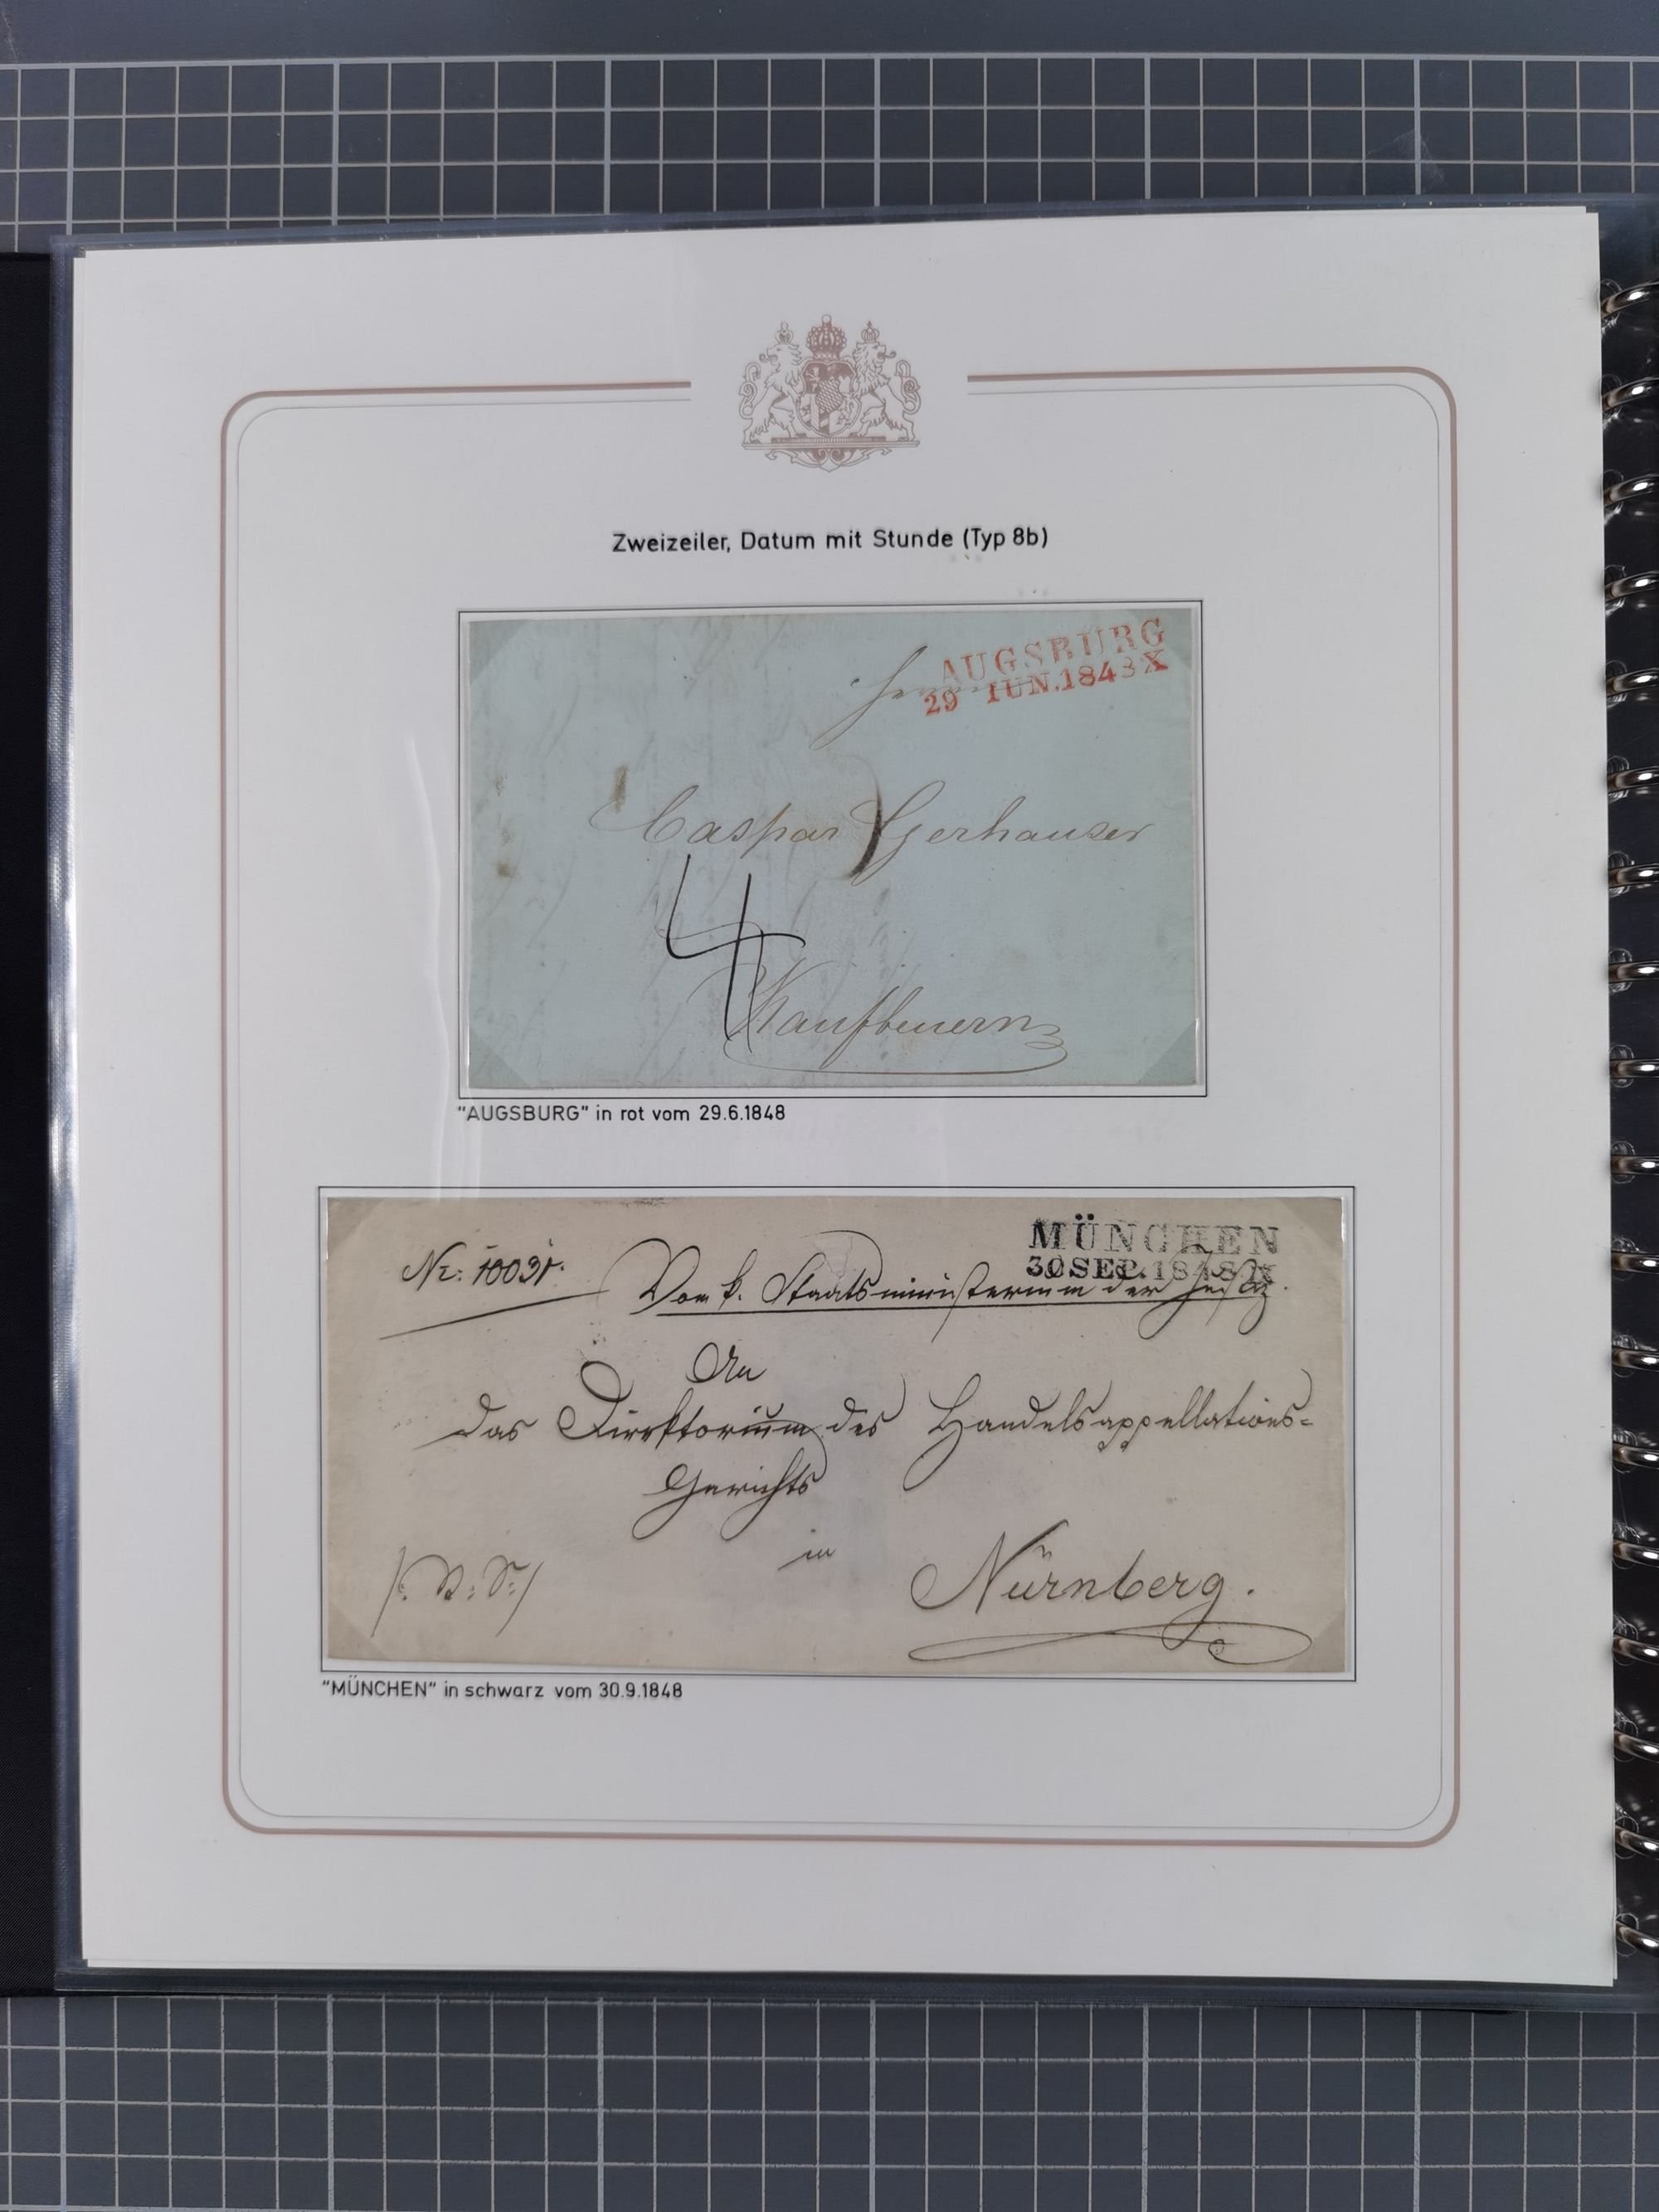 Zweizeiler, Datum mit Stunde (Typ 8b)
AUGSBURG
29 IUN.1848 X
Caspar Gerhauser
4
Kaufbeuern
"AUGSBURG" in rot vom 29.6.1848
MÜNCHEN
30 SEP. 1848 IX
Vom k. Staatsministerium der Justiz.
An
das Direktorium des Handelsappellations=
Gerichts
in
Nürnberg.
"MÜNCHEN" in schwarz vom 30.9.1848